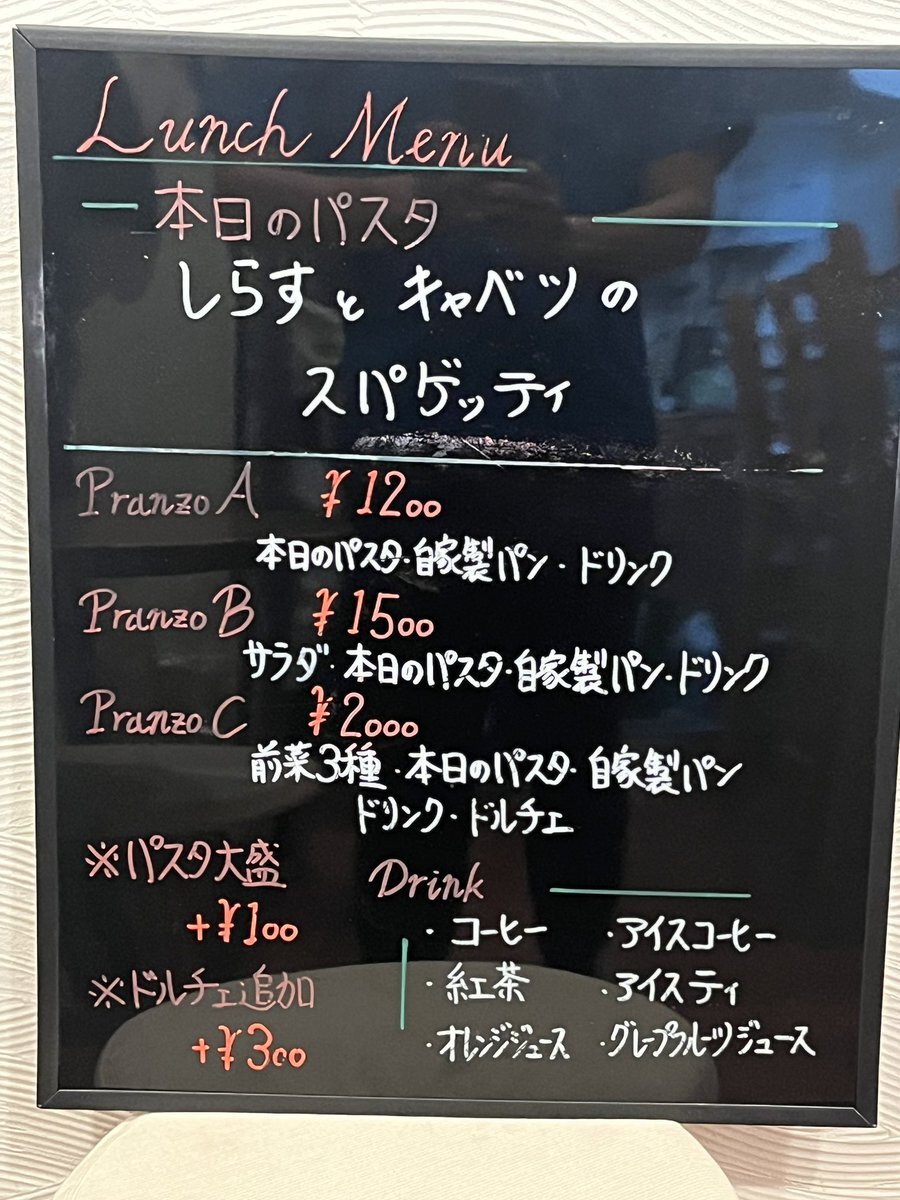 Lunch Menu
本日のパスタ
しらすと キャベツの
スパゲッティ
Pranzo A ¥1200
本日のパスタ・自家製パン・ドリンク
Pranzo B ¥1500
サラダ・本日のパスタ・自家製パン・ドリンク
Pranzo C ¥2000
前菜3種・本日のパスタ・自家製パン
ドリンク・ドルチェ
※パスタ大盛
+¥100
※ドルチェ追加
+¥300
Drink
・コーヒー ・アイスコーヒー
・紅茶 ・アイスティ
・オレンジジュース ・グレープフルーツジュース